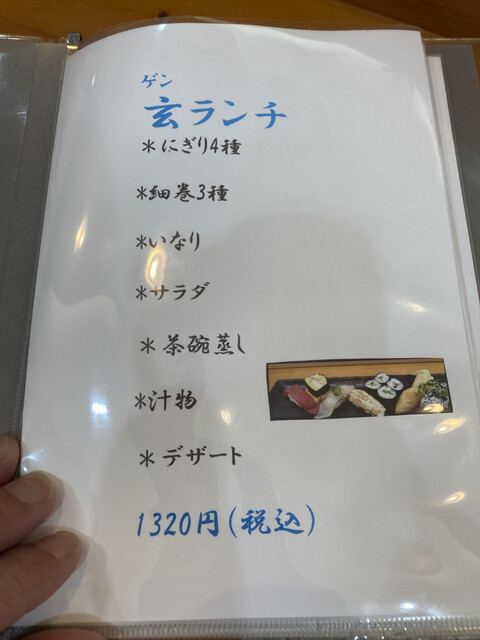 ゲン
玄ランチ
*にぎり4種
*細巻3種
*いなり
*サラダ
*茶碗蒸し
*汁物
*デザート
1320円(税込)